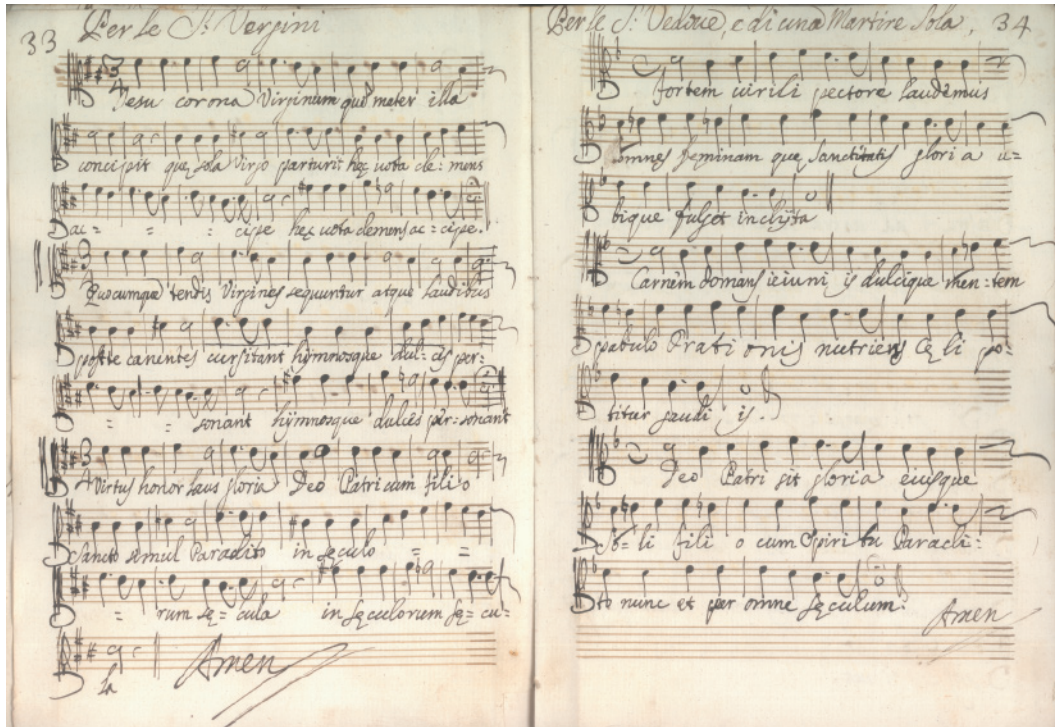 33 Per le S. Vergini
Jesu corona Virginum quẽ mater illa
concipit quę sola Virgo parturit hęc uota cle: mens
ac = = = cipe hęc uota clemens ac = cipe.
Quocumque tendis Virgines sequuntur atque laudibus
post te canentes cursitant hÿmnosque dul = cęs per =
= = sonant hÿmnosque dulcẽs per = sonant
Virtus honor laus gloria Deo Patri cum fili o
Sancto simul Paraclito in sęculo = =
= rum sę = cula in sęculorum sę = cu =
la Amen
Per le S. Vedoue, e di una Martire Sola, 34
fortem uirili pectore laudemus
omnes feminam quę sanctitatis glori a u =
bique fulget inclÿta
Carnem domans ieiuni is dulcique men = tem
pabulo Orati onis nutriens Cę li po =
titur gaudi is.
Deo Patri sit gloria eiusque
So = li fili o cum Spiritu Paracli =
to nunc et per omne sęculum. Amen